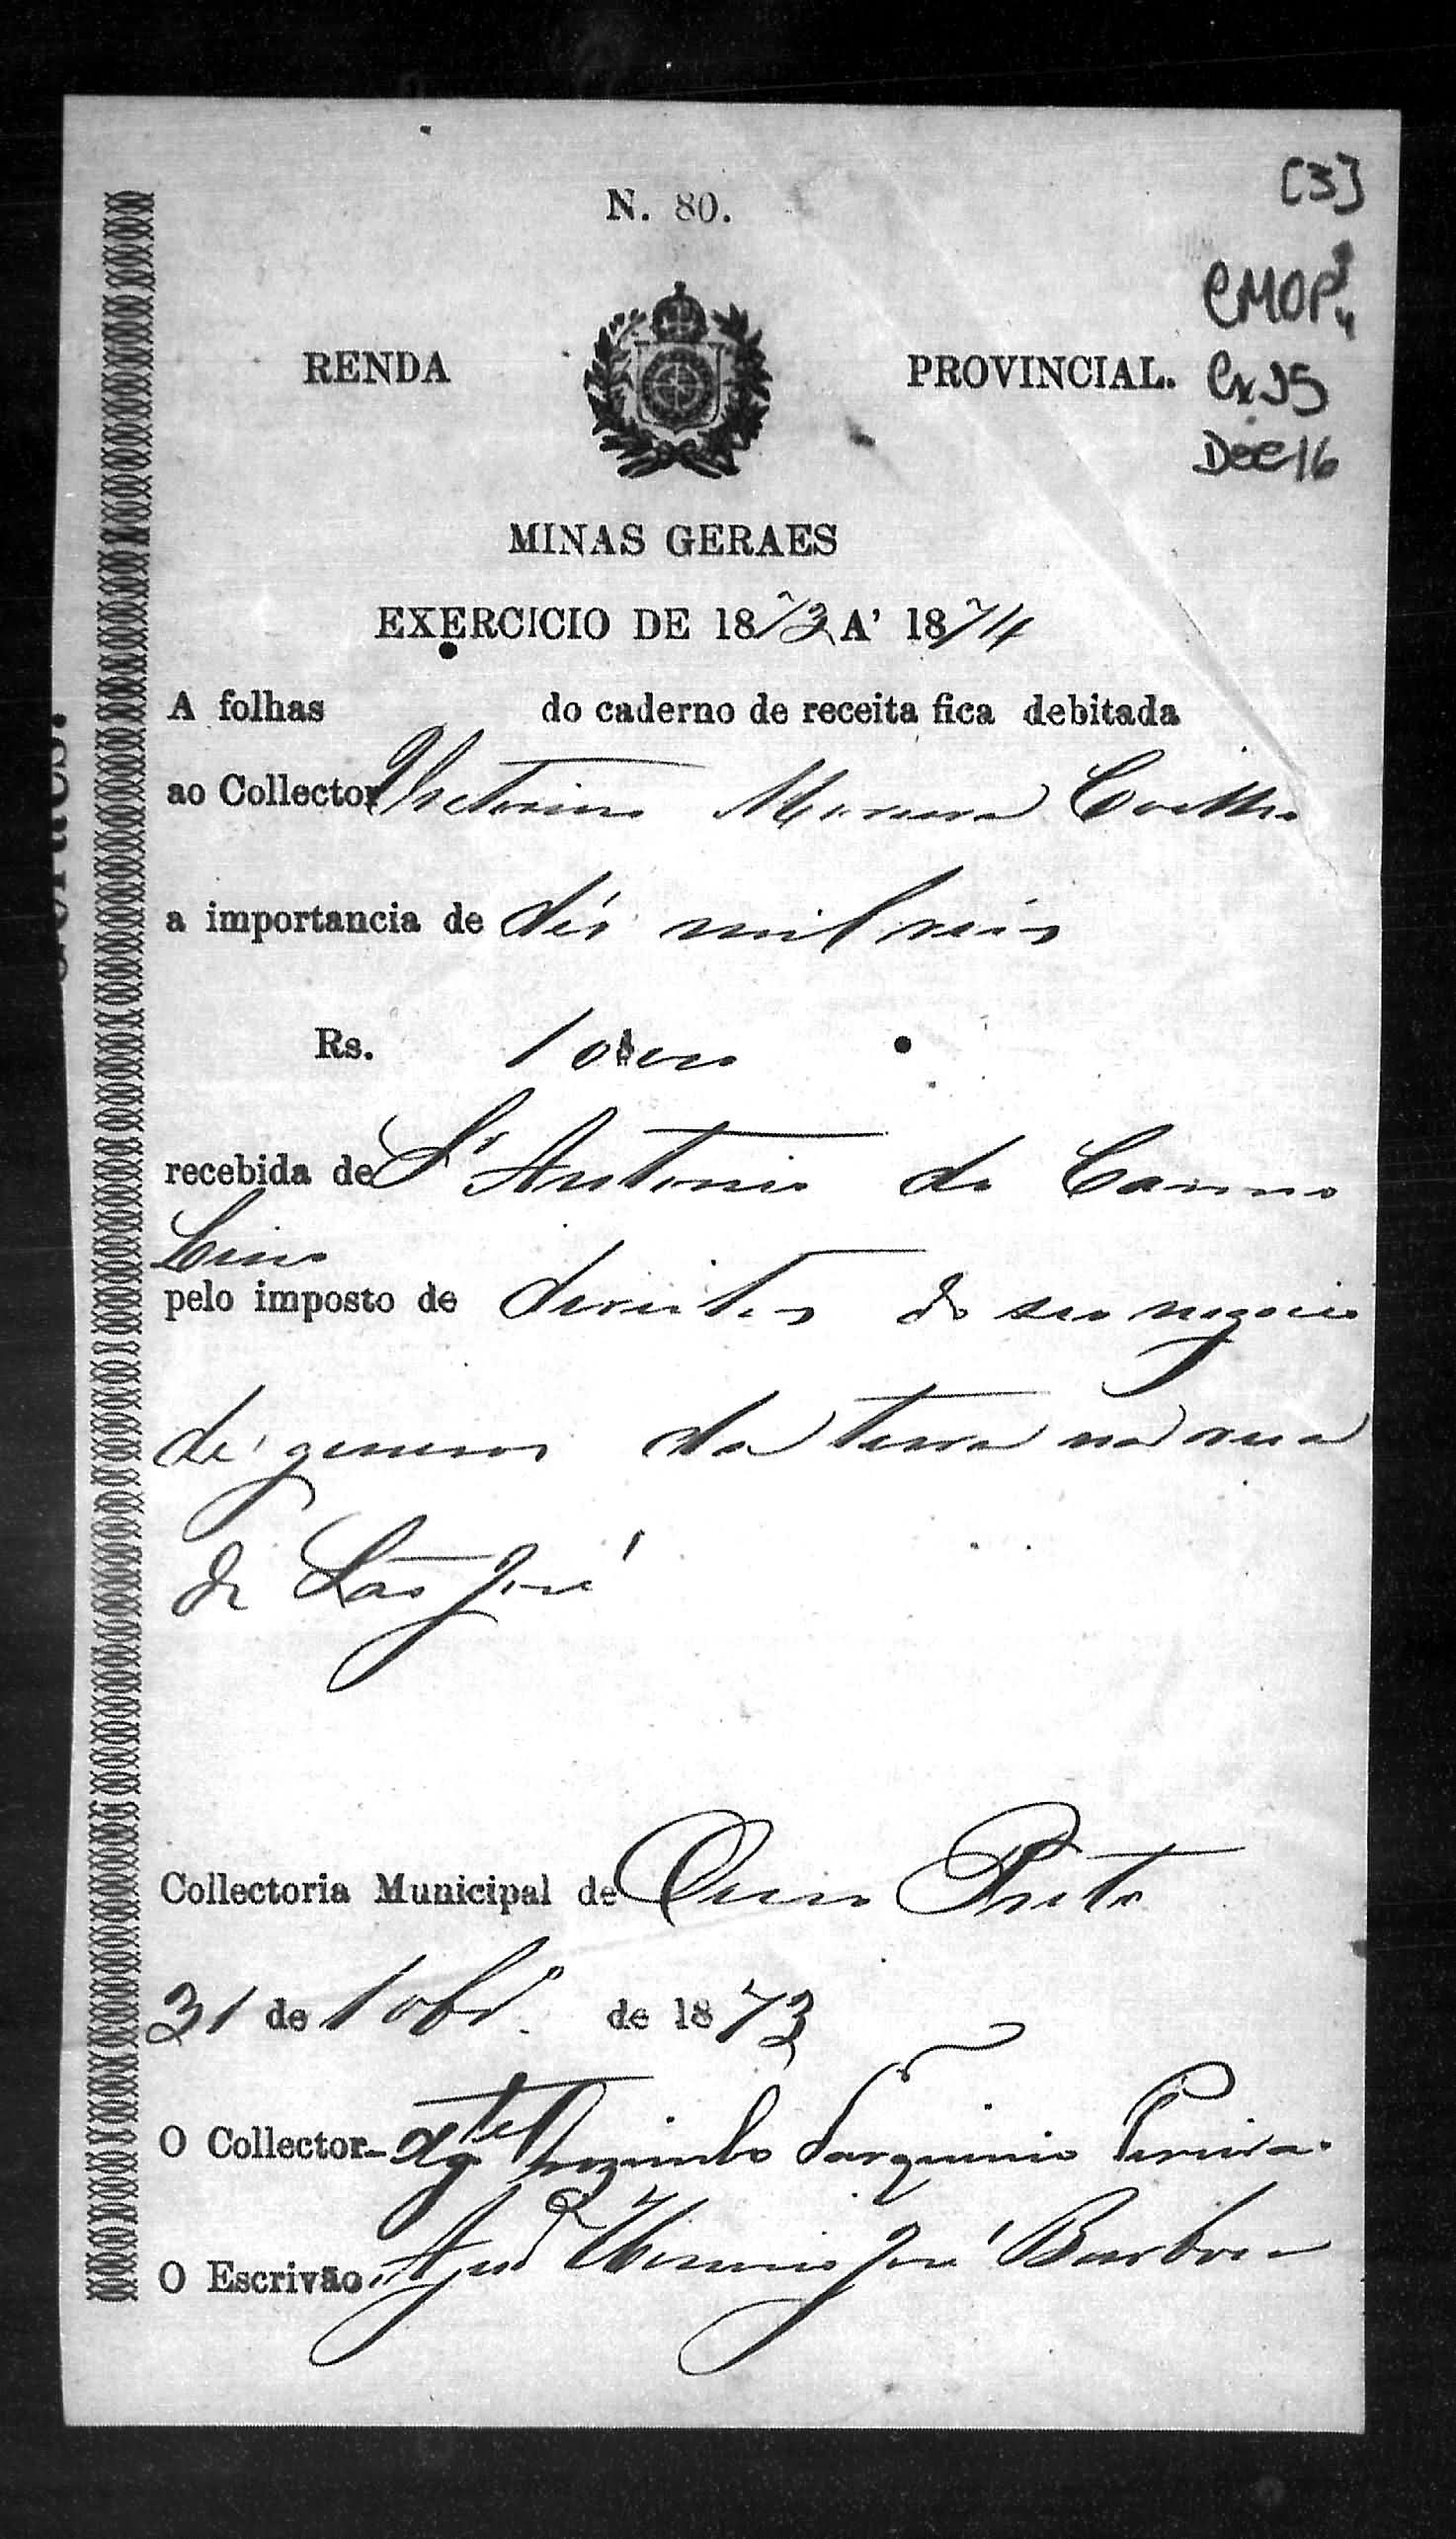 [3]
N. 80.
CMOP
Cx 95
Doc 16
RENDA PROVINCIAL.
MINAS GERAES
EXERCICIO DE 1873 A' 1874
A folhas do caderno de receita fica debitada
ao Collector Victorino Moreira Coelho
a importancia de dés mil reis
Rs. 10
recebida de Sr Antonio do Carmo
pelo imposto de direitos de seu negocio
de generos da terra na rua
de São José
Collectoria Municipal de Ouro Preto
31 de 10br.º de 1873
O Collector- Tarquinio Pereira.
O Escrivão José Barbosa